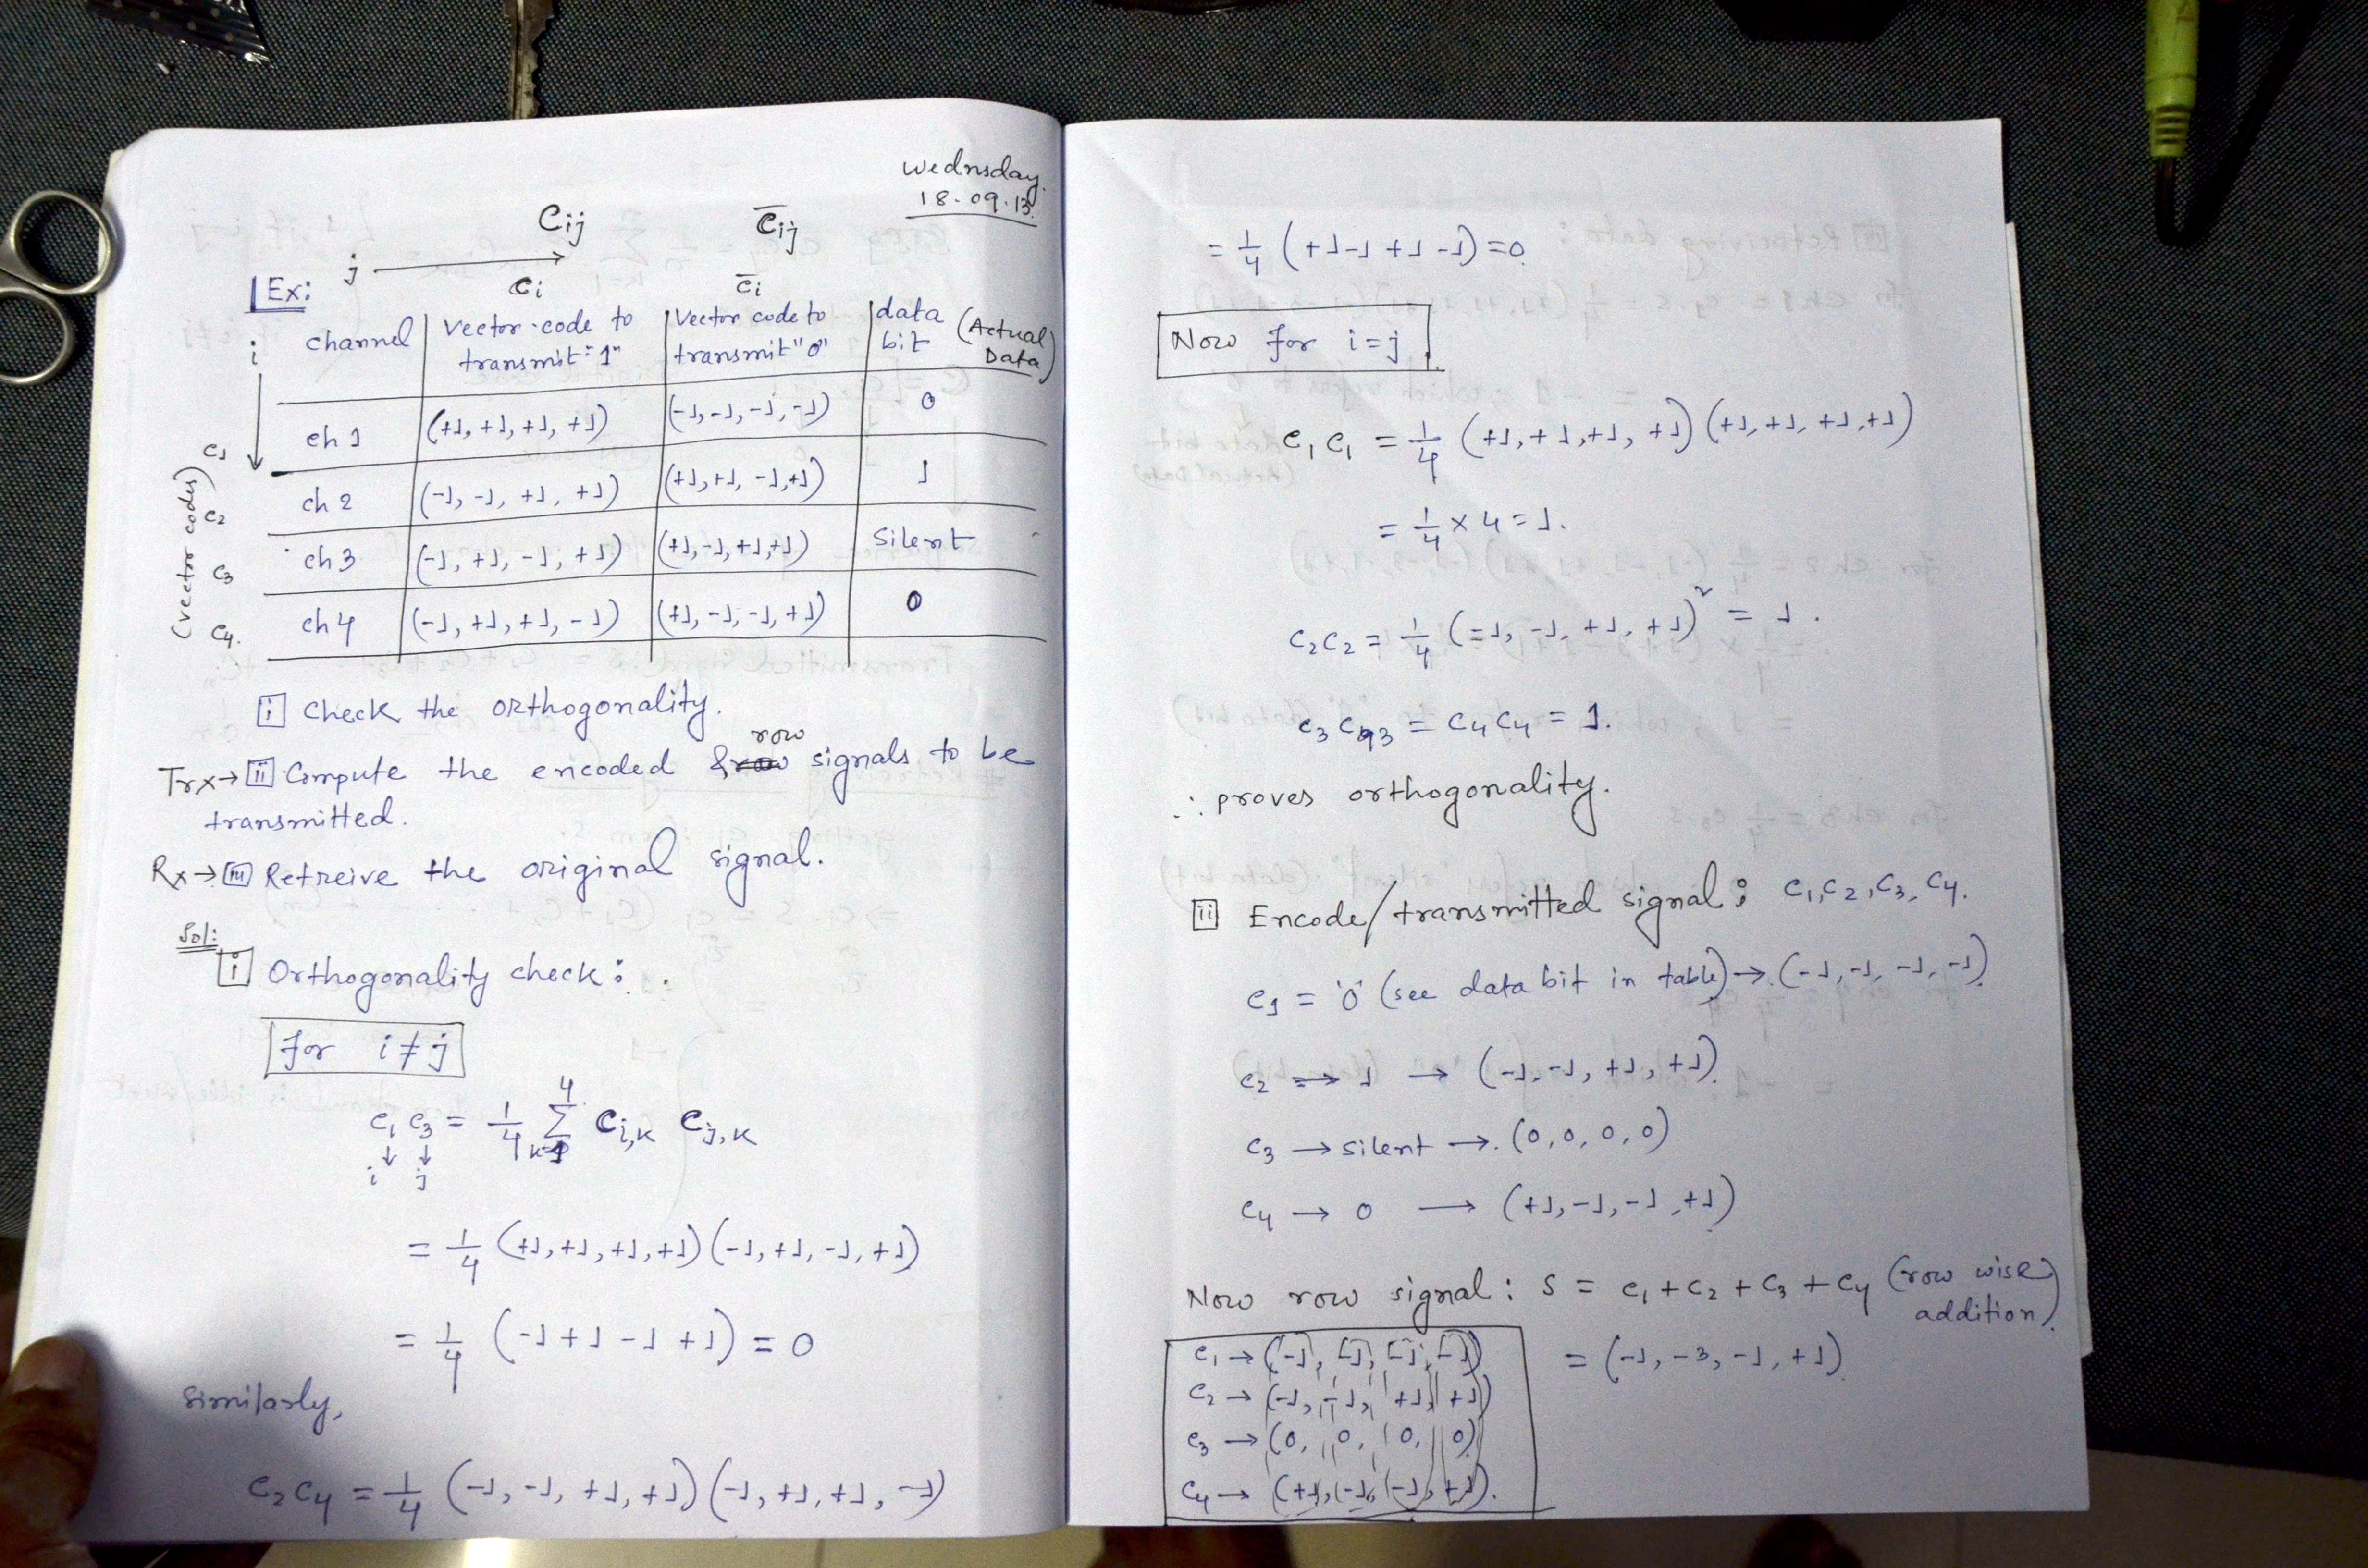 Wednsday.
18.09.13.
Cij C̅ij
j →
Ci C̅i
Ex:
i
channel | Vector code to transmit "1" | Vector code to transmit "0" | data bit (Actual Data)
C1 ch 1 | (+1, +1, +1, +1) | (-1, -1, -1, -1) | 0
C2 ch 2 | (-1, -1, +1, +1) | (+1, +1, -1, +1) | 1
C3 ch 3 | (-1, +1, -1, +1) | (+1, -1, +1, +1) | Silent
C4. ch 4 | (-1, +1, +1, -1) | (+1, -1, -1, +1) | 0
(vector codes)
i Check the orthogonality.
Trx→ ii Compute the encoded & row signals to be
transmitted.
Rx→ iii Retreive the original signal.
Sol:
i Orthogonality check:
For i ≠ j
C1 C3 = 1/4 4 Σ k=1 Ci,k Cj,k
↓ ↓
i j
= 1/4 (+1, +1, +1, +1) (-1, +1, -1, +1)
= 1/4 (-1 +1 -1 +1) = 0
Similarly,
C2 C4 = 1/4 (-1, -1, +1, +1) (-1, +1, +1, -1)
= 1/4 (+1 -1 +1 -1) = 0.
Now for i=j
C1 C1 = 1/4 (+1, +1, +1, +1) (+1, +1, +1, +1)
= 1/4 × 4 = 1.
C2 C2 = 1/4 (-1, -1, +1, +1)² = 1.
C3 C3 = C4 C4 = 1.
∴ proves orthogonality.
ii Encode/transmitted signal: C1, C2, C3, C4.
C1 = '0' (see data bit in table) → (-1, -1, -1, -1)
C2 → 1 → (-1, -1, +1, +1)
C3 → silent → (0, 0, 0, 0)
C4 → 0 → (+1, -1, -1, +1)
Now row signal: S = C1 + C2 + C3 + C4 (row wise
addition).
C1 → (-1, -1, -1, -1) = (-1, -3, -1, +1)
C2 → (-1, -1, +1, +1)
C3 → (0, 0, 0, 0)
C4 → (+1, -1, -1, +1).